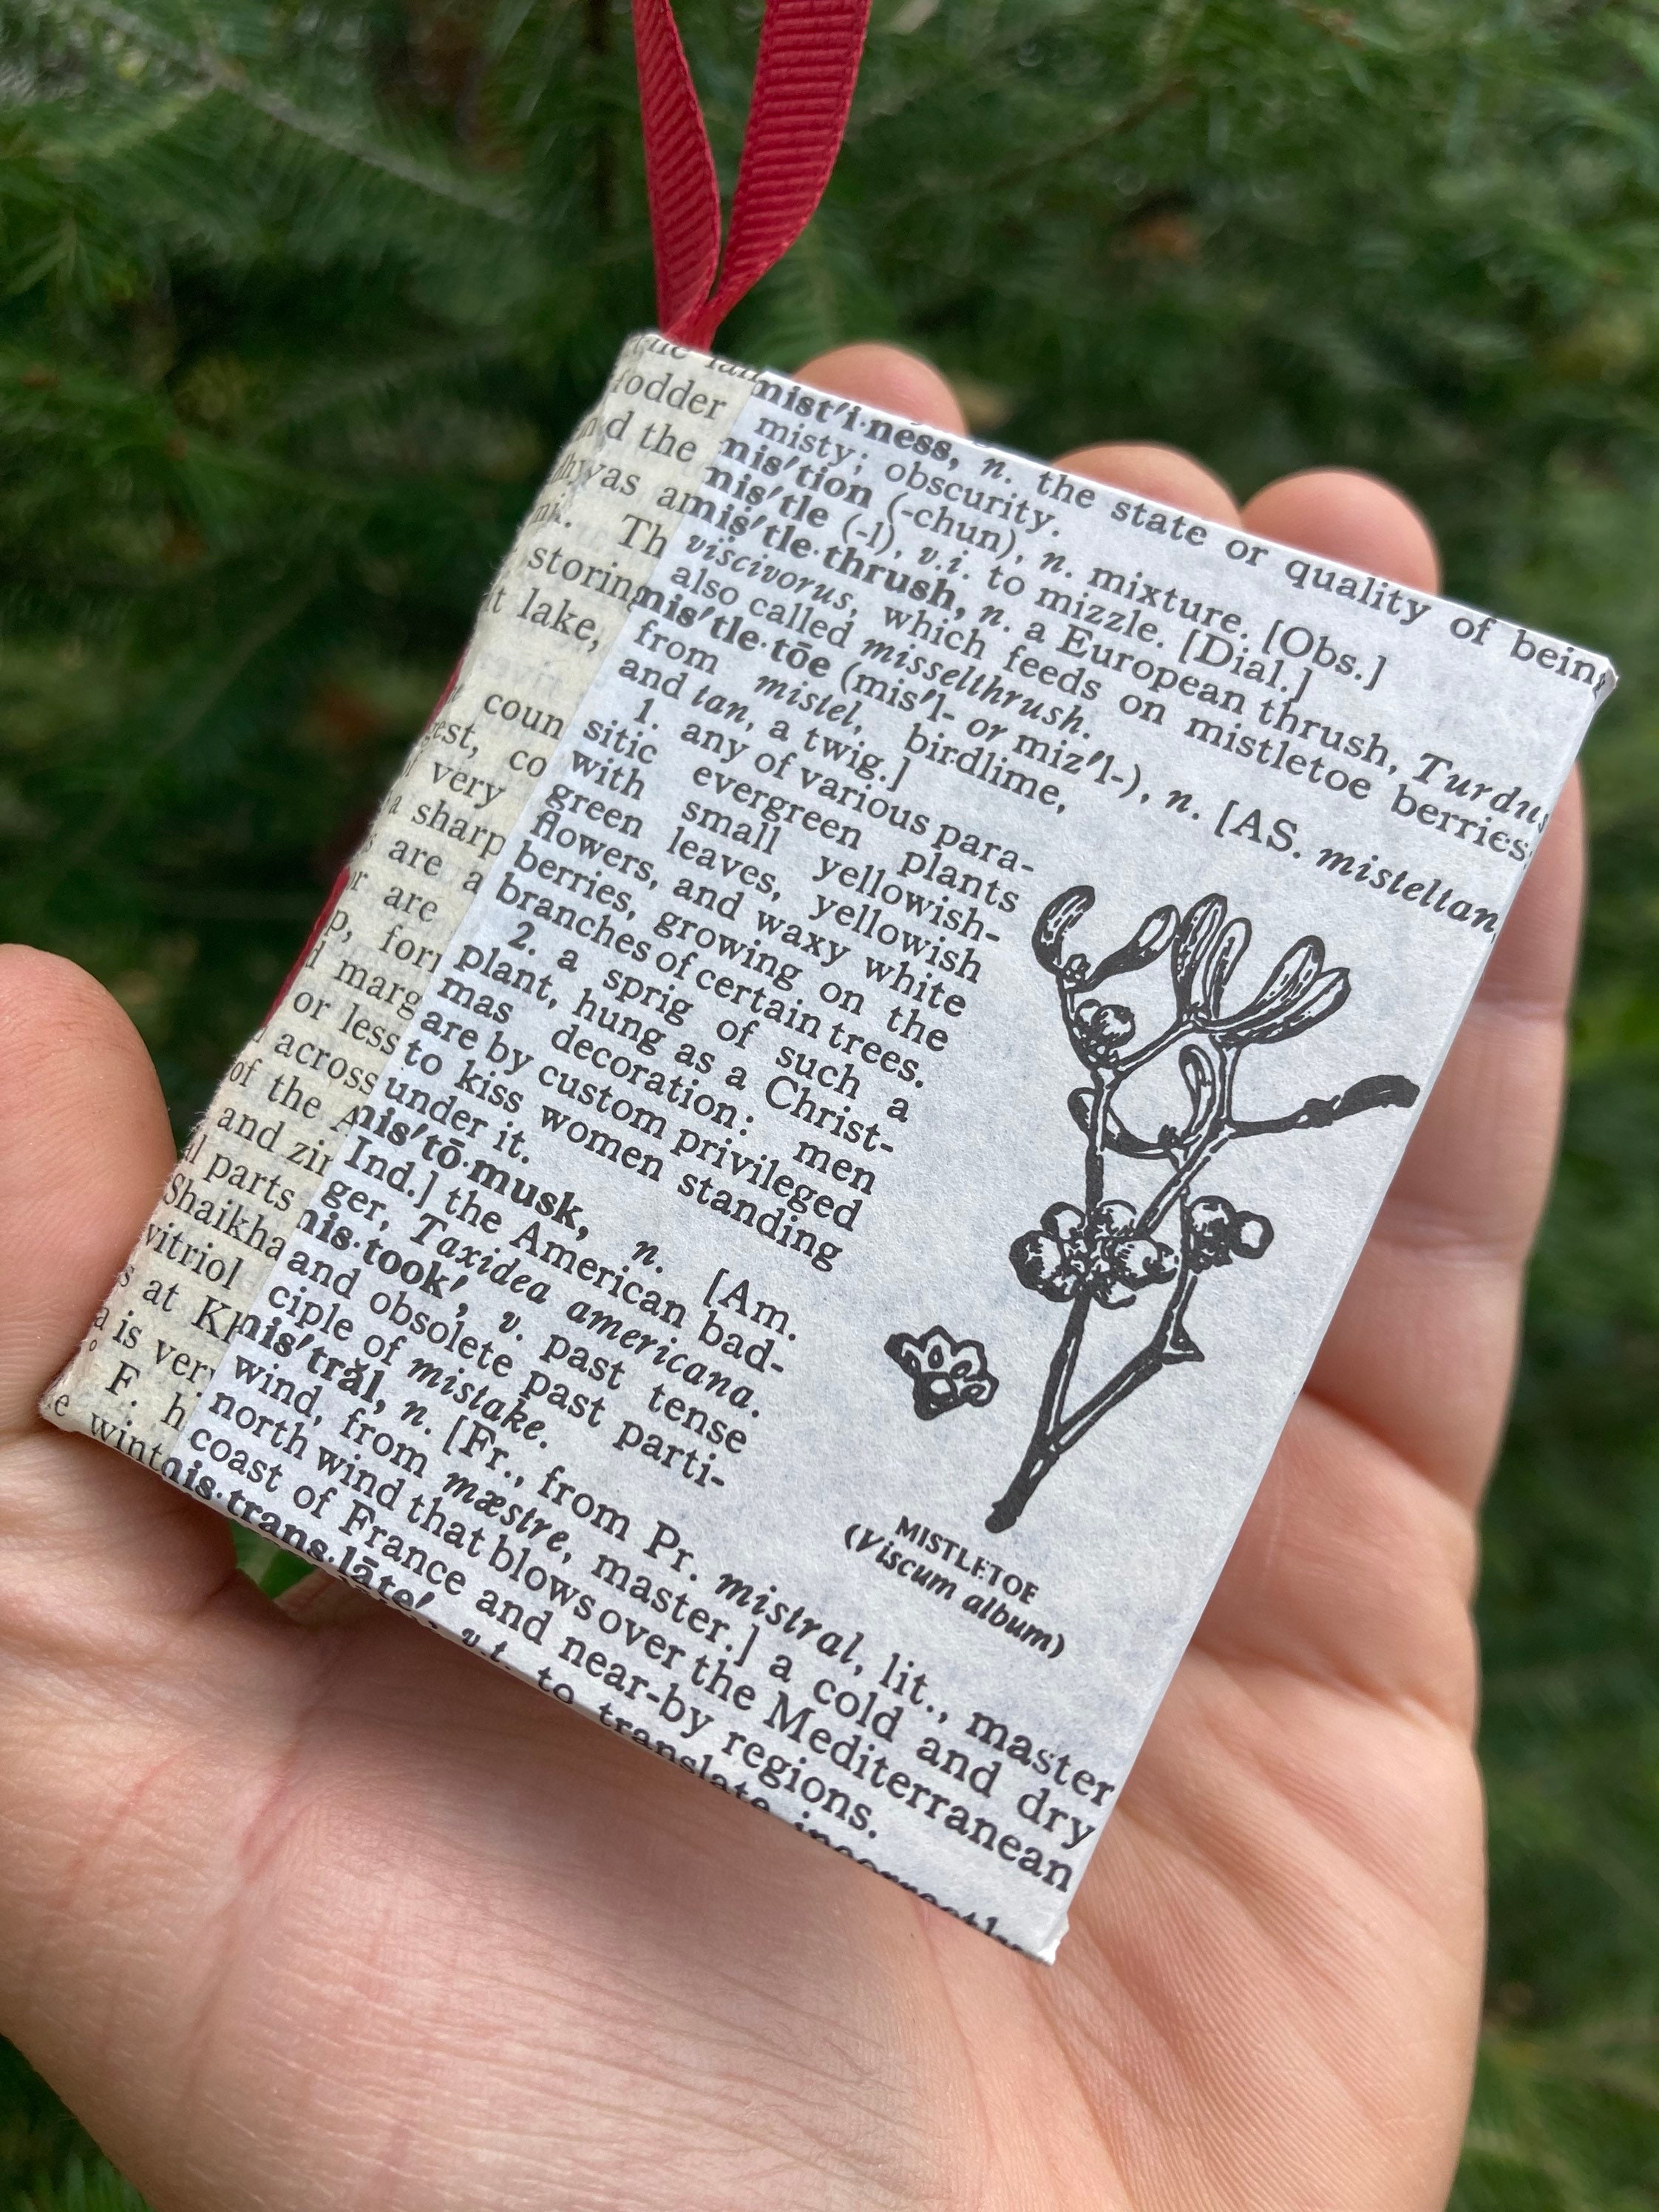 fodder
d the
was a
Th
storin
t lake,
coun
est, co
very
a sharp
are a
r are
p, for
d marg
or less
across
of the A
and zin
l parts
Shaikha
vitriol
s at Kh
a is very
F. h
wint
mist′i·ness, n. the state or quality of being
misty; obscurity.
mis′tion (-chun), n. mixture. [Obs.]
mis′tle (-l), v.i. to mizzle. [Dial.]
mis′tle·thrush, n. a European thrush, Turdus
viscivorus, which feeds on mistletoe berries:
also called misselthrush.
mis′tle·tōe (mis′l- or miz′l-), n. [AS. misteltan,
from mistel, birdlime,
and tan, a twig.]
1. any of various para-
sitic evergreen plants
with small yellowish-
green leaves, yellowish
flowers, and waxy white
berries, growing on the
branches of certain trees.
2. a sprig of such a
plant, hung as a Christ-
mas decoration: men
are by custom privileged
to kiss women standing
under it.
MISTLETOE
(Viscum album)
mis′tō·musk, n. [Am.
Ind.] the American bad-
ger, Taxidea americana.
mis·took′, v. past tense
and obsolete past parti-
ciple of mistake.
mis′trăl, n. [Fr., from Pr. mistral, lit., master
wind, from mæstre, master.] a cold and dry
north wind that blows over the Mediterranean
coast of France and near-by regions.
mis·trans·lāte′, v.t. to translate incorrectly